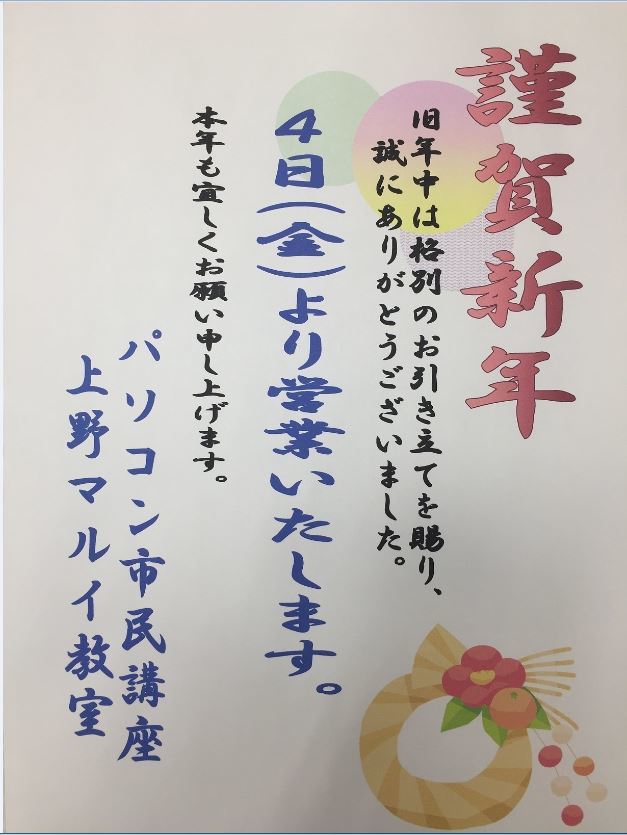 謹賀新年
旧年中は格別のお引き立てを賜り、
誠にありがとうございました。
4日(金)より営業いたします。
本年も宜しくお願い申し上げます。
パソコン市民講座
上野マルイ教室